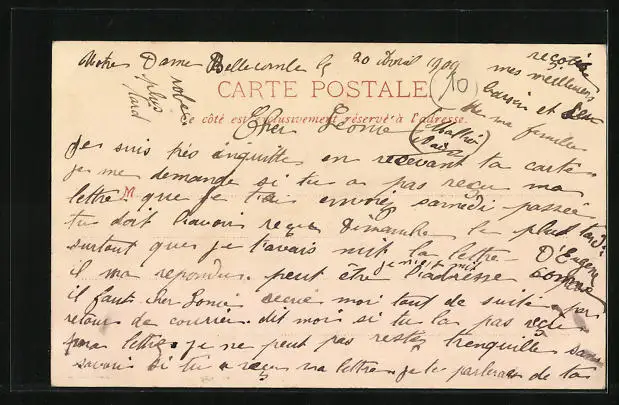 Notre Dame Bellecombe le 20 Avril 1909
CARTE POSTALE
côté exclusivement réservé à l'adresse.
(10)
recois
mes meilleurs
baisers et
de ma famille
plus
tard
Cher
Je suis très inquiette en recevant ta carte
je me demande si tu a pas reçu ma
lettre. M que je t'ai envoyé samedi passée
tu doit l'avoir reçu Dimanche le plus tard
surtout que je t'avais mit la lettre D'Eugène
il ma repondus. peut être l'adresse comme
je n'ait mit
il faut. cher moi tout de suite par
retour de courrier. dit moi si tu la pas reçu
ma lettre. je ne peut pas restée trenquille sans
savoir si tu a reçu ma lettre. je te parlerais de ta